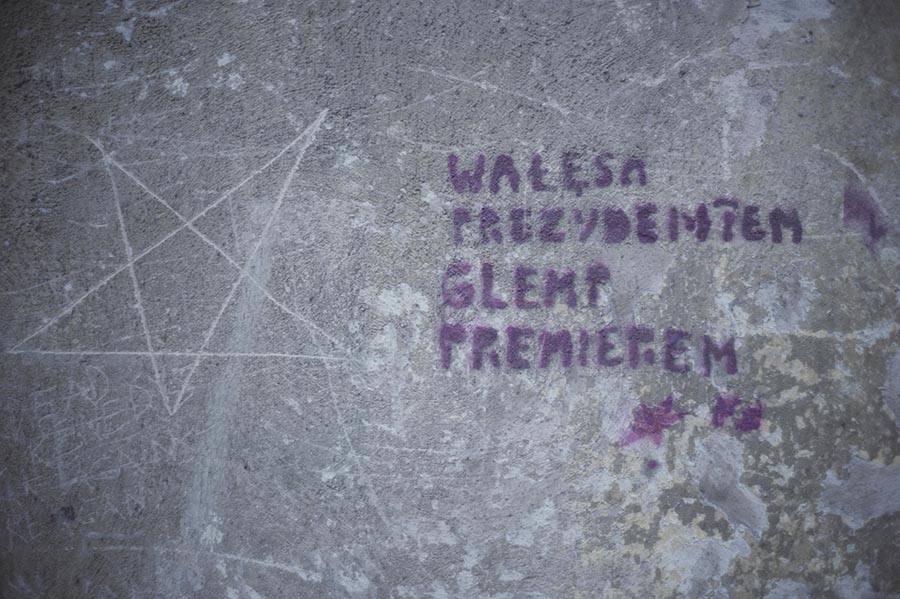 WAŁĘSA
PREZYDEMTEM
GLEMP
PREMIEREM